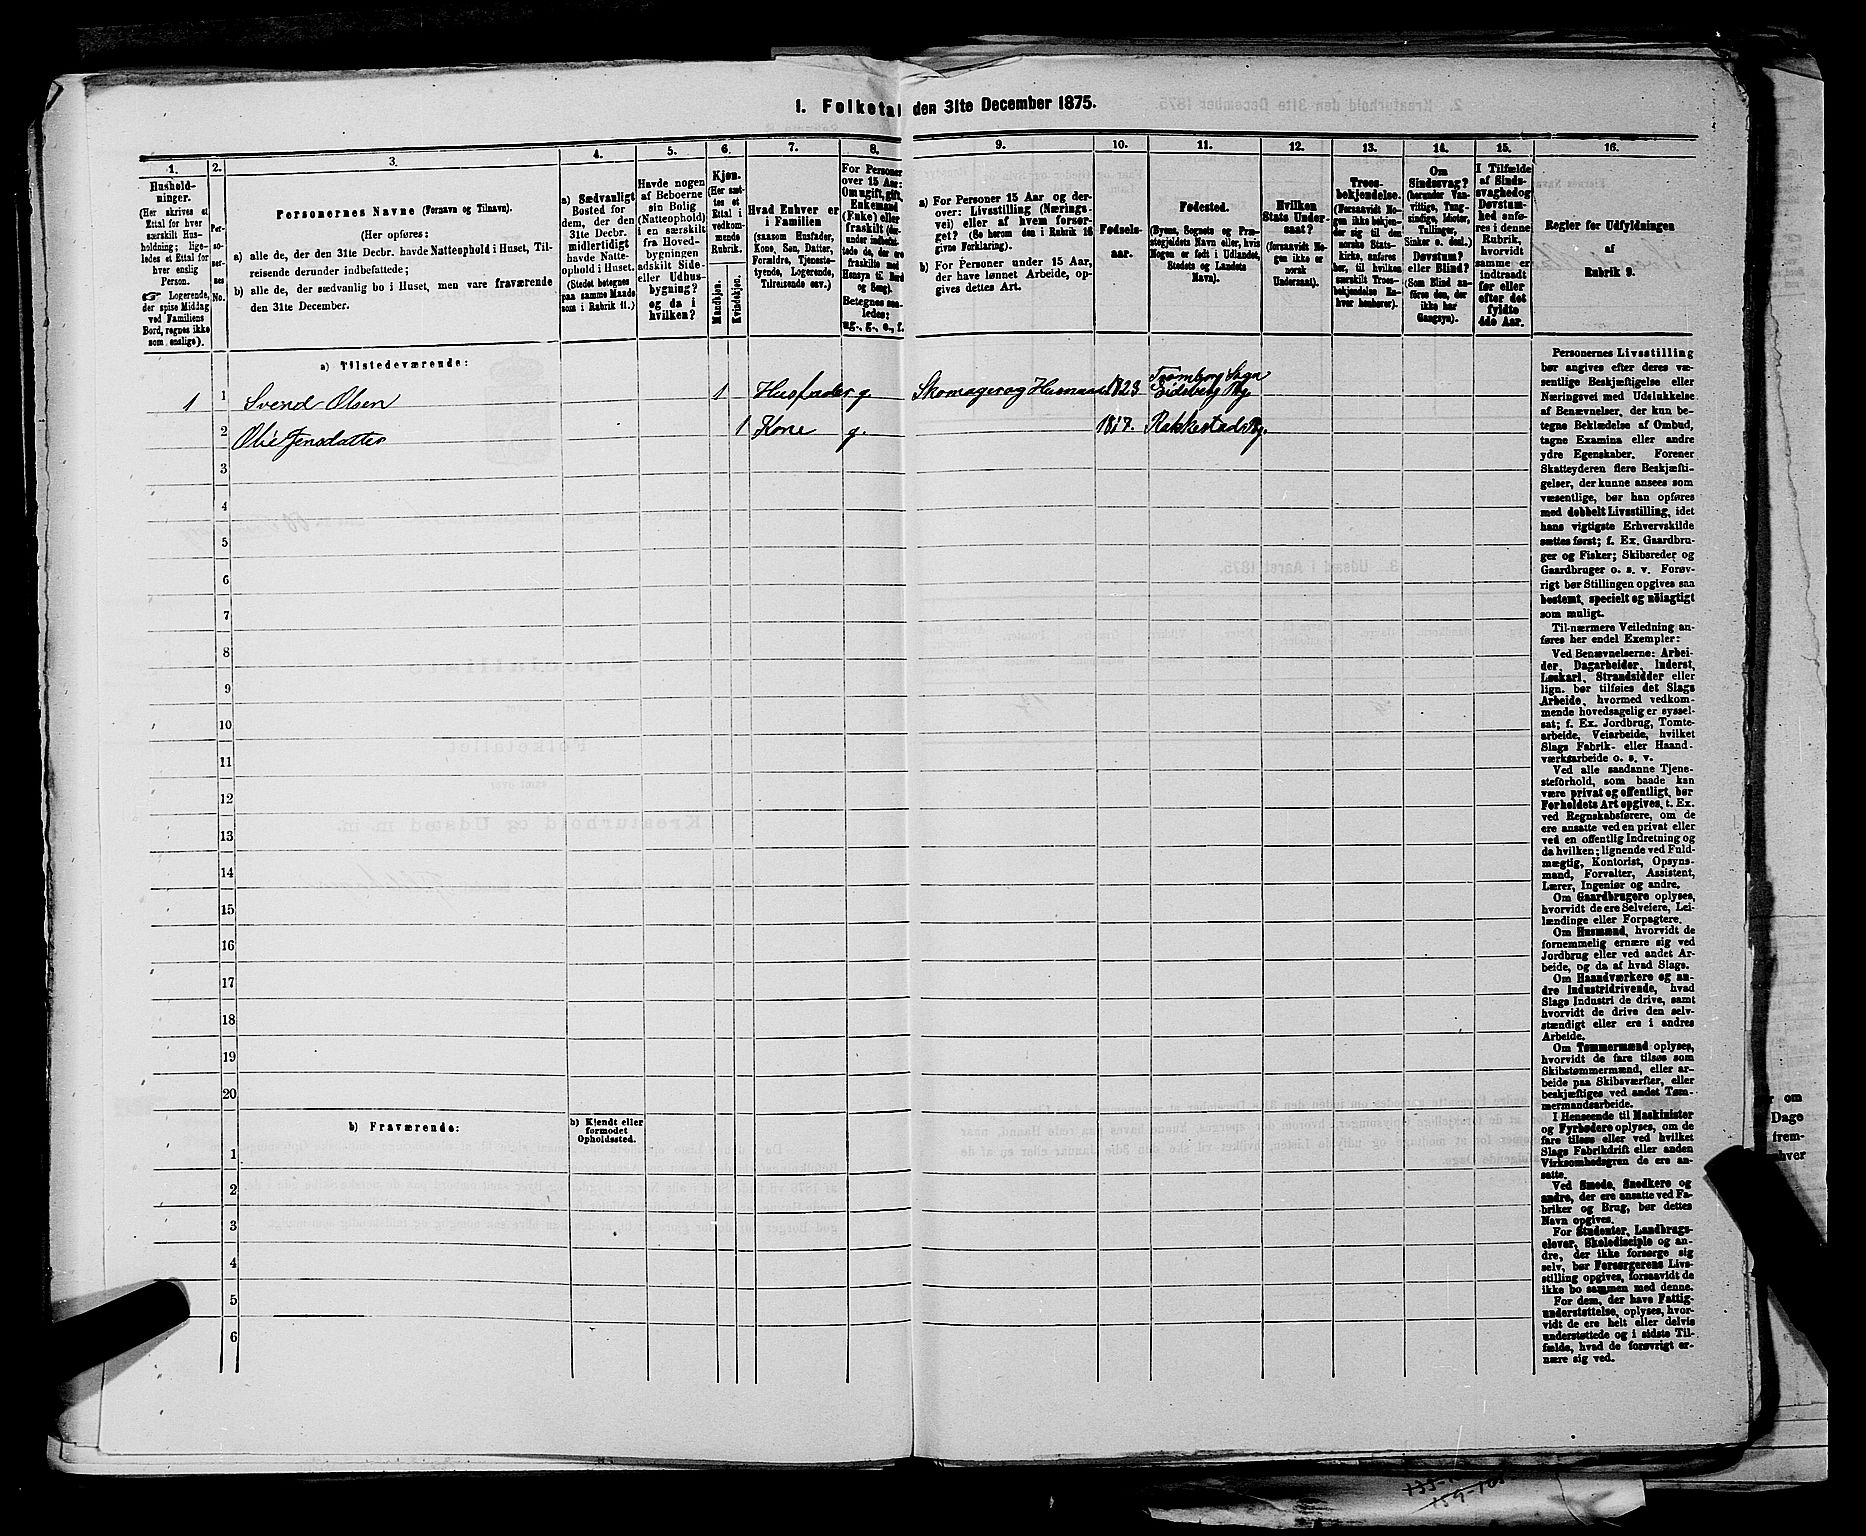 1. Folketal den 31te December 1875.
1.
2.
3.
4.
5.
6.
7.
8.
9.
10.
11.
12.
13.
14.
15.
16.
Hushold-
ninger.
(Her skrives et
Ettal for hver
særskilt Hus-
holdning; lige-
ledes et Ettal for
hver enslig
Person.
☞ Logerende,
der spise Middag
ved Familiens
Bord, regnes ikke
som enslige).
Per-
so-
ner-
nes
No.
Personernes Navne (Fornavn og Tilnavn).
(Her opføres:
a) alle de, der den 31te Decbr. havde Natteophold i Huset, Til-
reisende derunder indbefattede;
b) alle de, der sædvanlig bo i Huset, men vare fraværende
den 31te December.
a) Sædvanligt
Bosted for
dem, der den
31te Decbr.
midlertidigt
havde Natte-
ophold i Huset.
(Stedet betegnes
paa samme Maade
som i Rubrik 11.)
Havde nogen
af Beboerne
sin Bolig
(Natteophold)
i en særskilt
fra Hoved-
bygningen
adskilt Side-
eller Udhus-
bygning?
og da i
hvilken?
Kjøn.
(Her sæt-
tes et
Ettal i
vedkom-
mende
Rubrik.
Mandkjøn.
Kvindekjøn.
Hvad Enhver er
i Familien
(saasom Husfader,
Kone, Søn, Datter,
Forældre, Tjeneste-
tyende, Logerende,
Tilreisende osv.)
For Personer
over 15 Aar:
Om ugift, gift,
Enkemand
(Enke) eller
fraskilt (der-
under indbefat-
tede de, der ere
fraskilte med
Hensyn til Bord
og Seng).
Betegnes saa-
ledes:
ug., g., e., f.
a) For Personer 15 Aar og der-
over: Livsstilling (Nærings-
vei) eller af hvem forsør-
get? (Se herom den i Rubrik 16
givne Forklaring).
b) For Personer under 15 Aar,
der have lønnet Arbeide, op-
gives dettes Art.
Fødsels-
aar.
Fødested.
(Byens, Sognets og Præ-
stegjeldets Navn eller, hvis
Nogen er født i Udlandet,
Stedets og Landets
Navn).
Hvilken
Stats Under-
saat?
(forsaavidt No-
gen ikke er
norsk
Undersaat).
Troes-
bekjendelse.
(Forsaavidt No-
gen ikke bekjen-
der sig til den
norske Stats-
kirke, anføres
her, til hvilken
særskilt Troes-
bekjendelse En-
hver henhører).
Om
Sindssvag?
(herunder Van-
vittige, Tung-
sindige, Idioter,
Tullinger,
Sinker o. desl.)
Døvstum?
eller Blind?
(Som Blind an-
føres den, der
ikke har
Gangsyn).
I Tilfælde
af Sinds-
svaghed og
Døvstum-
hed anfø-
res i denne
Rubrik,
hvorvidt
samme er
indtraadt
før eller
efter det
fyldte
4de Aar.
Regler for Udfyldningen
af
Rubrik 9.
a) Tilstedeværende:
1 1 Svend Olsen 1 Husfader g. Skomager og Husmand 1823 Trømborg Sogn
Eidsberg Pg.
2 Olie Jensdatter 1 Kone g. 1817. Rakkestad Pg.
3
4
5
6
7
8
9
10
11
12
13
14
15
16
17
18
19
20
b) Fraværende:
b) Kjendt eller
formodet
Opholdssted.
1
2
3
4
5
6
Personernes Livsstilling
bør angives efter deres væ-
sentlige Beskjæftigelse eller
Næringsvei med Udelukkelse
af Benævnelser, der kun be-
tegne Beklædelse af Ombud,
tagne Examina eller andre
ydre Egenskaber. Forener
Skatteyderen flere Beskjæfti-
gelser, der kunne ansees som
væsentlige, bør han opføres
med dobbelt Livsstilling, idet
hans vigtigste Erhvervskilde
sættes først; f. Ex. Gaardbru-
ger og Fisker; Skibsreder og
Gaardbruger o. s. v. Forøv-
rigt bør Stillingen opgives saa
bestemt, specielt og nøiagtigt
som muligt.
Til nærmere Veiledning an-
føres her endel Exempler:
Ved Benævnelserne: Arbei-
der, Dagarbeider, Inderst,
Løskarl, Strandsidder eller
lign. bør tilføies det Slags
Arbeide, hvormed vedkom-
mende hovedsagelig er syssel-
sat; f. Ex. Jordbrug, Tomte-
arbeide, Veiarbeide, hvilket
Slags Fabrik- eller Haand-
værksarbeide o. s. v.
Ved alle saadanne Tjene-
steforhold, som baade kan
være privat og offentligt, bør
Forholdets Art opgives, t. Ex.
ved Regnskabsførere, om de
ere ansatte ved en privat eller
ved en offentlig Indretning og
da hvilken; lignende ved Fuld-
mægtig, Kontorist, Opsyns-
mand, Forvalter, Assistent,
Lærer, Ingeniør og andre.
Om Gaardbrugere oplyses,
hvorvidt de ere Selveiere, Lei-
lændinge eller Forpagtere.
Om Husmænd, hvorvidt de
fornemmelig ernære sig ved
Jordbrug eller ved andet Ar-
beide, og da af hvad Slags.
Om Haandværkere og an-
dre Industridrivende, hvad
Slags Industri de drive, samt
hvorvidt de drive den selv-
stændigt eller ere i andres
Arbeide.
Om Tømmermænd oplyses,
hvorvidt de fare tilsøs som
Skibstømmermænd, eller ar-
beide paa Skibsværfter, eller
beskjæftiges ved andet Tøm-
mermandsarbeide.
I Henseende til Maskinister
og Fyrbødere oplyses, om de
fare tilsøs eller ved hvilket
Slags Fabrikdrift eller anden
Virksomhedsgren de ere an-
satte.
Ved Smede, Snedkere og
andre, der ere ansatte ved Fa-
briker og Brug, bør dettes
Navn opgives.
For Studenter, Landbrugs-
elever, Skoledisciple og an-
dre, der ikke forsørge sig
selv, bør Forsørgerens Livs-
stilling opgives, forsaavidt de
ikke bo sammen med denne.
For dem, der have Fattig-
understøttelse, oplyses, hvor-
vidt de ere helt eller delvis
understøttede og i sidste Til-
fælde, hvad de forøvrigt er-
nære sig ved.
r om
Dage
frem-
hver